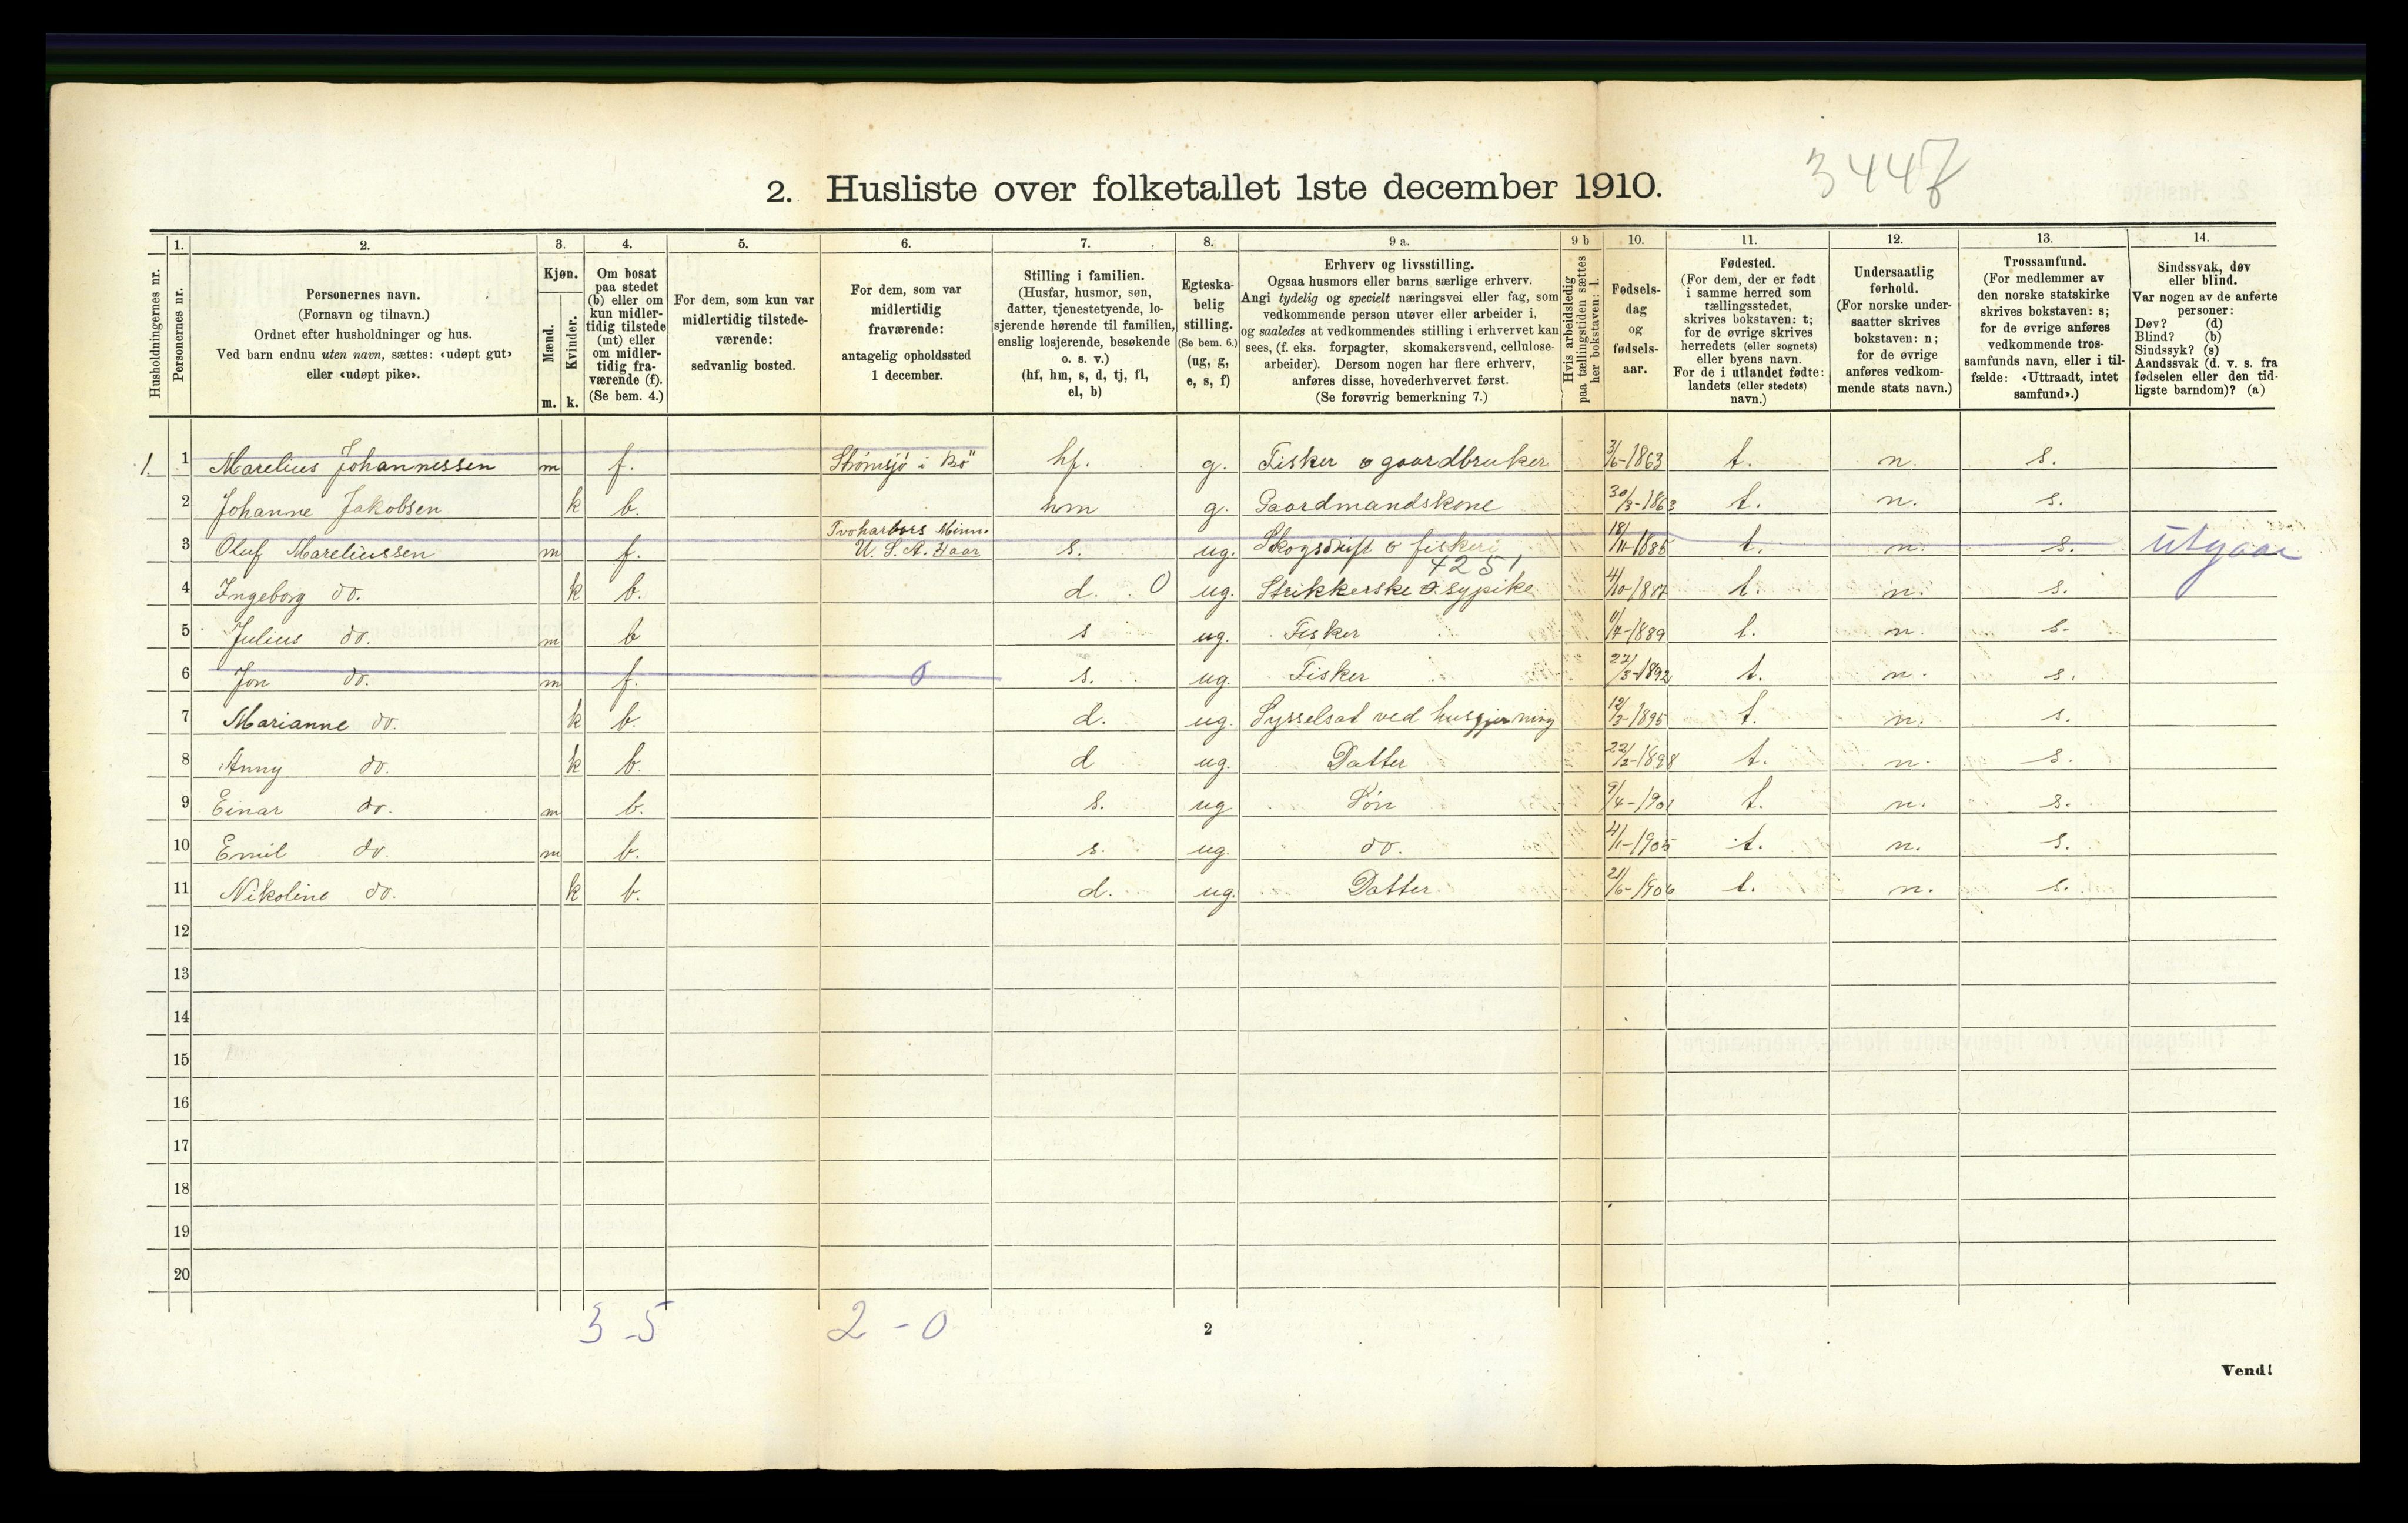 2. Husliste over folketallet 1ste december 1910.
3447
Husholdningernes nr.
1. Personernes nr.
2. Personernes navn.
(Fornavn og tilnavn.)
Ordnet efter husholdninger og hus.
Ved barn endnu uten navn, sættes: «udøpt gut»
eller «udøpt pike».
3. Kjøn.
Mænd. m.
Kvinder. k.
4. Om bosat
paa stedet
(b) eller om
kun midler-
tidig tilstede
(mt) eller
om midler-
tidig fra-
værende (f).
(Se bem. 4.)
5. For dem, som kun var
midlertidig tilstede-
værende:
sedvanlig bosted.
6. For dem, som var
midlertidig
fraværende:
antagelig opholdssted
1 december.
7. Stilling i familien.
(Husfar, husmor, søn,
datter, tjenestetyende, lo-
sjerende hørende til familien,
enslig losjerende, besøkende
o. s. v.)
(hf, hm, s, d, tj, fl,
el, b)
8. Egteska-
belig
stilling.
(Se bem. 6.)
(ug, g,
e, s, f)
9 a. Erhverv og livsstilling.
Ogsaa husmors eller barns særlige erhverv.
Angi tydelig og specielt næringsvei eller fag, som
vedkommende person utøver eller arbeider i,
og saaledes at vedkommendes stilling i erhvervet kan
sees, (f. eks. forpagter, skomakersvend, cellulose-
arbeider). Dersom nogen har flere erhverv,
anføres disse, hovederhvervet først.
(Se forøvrig bemerkning 7.)
9 b Hvis arbeidsledig
paa tællingstiden sættes
her bokstaven: l.
10. Fødsels-
dag
og
fødsels-
aar.
11. Fødested.
(For dem, der er født
i samme herred som
tællingsstedet,
skrives bokstaven: t;
for de øvrige skrives
herredets (eller sognets)
eller byens navn.
For de i utlandet fødte:
landets (eller stedets)
navn.)
12. Undersaatlig
forhold.
(For norske under-
saatter skrives
bokstaven: n;
for de øvrige
anføres vedkom-
mende stats navn.)
13. Trossamfund.
(For medlemmer av
den norske statskirke
skrives bokstaven: s;
for de øvrige anføres
vedkommende tros-
samfunds navn, eller i til-
fælde: «Uttraadt, intet
samfund».)
14. Sindssvak, døv
eller blind.
Var nogen av de anførte
personer:
Døv? (d)
Blind? (b)
Sindssyk? (s)
Aandssvak (d. v. s. fra
fødselen eller den tid-
ligste barndom)? (a)
1. 1 Marelius Johannessen m f. Strømsjö i Bö hf. g. Fisker o gaardbruker 3/6-1863 t. n. s.
2 Johanne Jakobsen k b. hm g. Gaardmandskone 30/3-1863 t. n. s.
3 Oluf Mareliussen m f. Tvoharbors Minn. U. S. A. 4 aar s. ug. Skogsdrift o fiskeri 18/11-1885 t. n. s. utgaar
4251
4 Ingeborg do. k b. d. 0 ug. Strikkerske o sypike 4/10-1887 t. n. s.
5 Julius do. m b s ug. Fisker 11/7-1889 t. n. s.
6 Jon do. m f. 0 s. ug. Fisker 22/3-1892 t. n. s.
7 Marianne do. k b. d. ug. Sysselsat ved husgjerning 12/3-1895 t. n. s.
8 Anny do. k b. d ug. Datter 22/2-1898 t. n. s.
9 Einar do. m b. s. ug Søn 9/4-1901 t. n. s.
10 Emil do. m b. s. ug. do. 4/1-1905 t. n. s.
11 Nikoline do. k b. d. ug. Datter 21/6-1906 t. n. s.
12
13
14
15
16
17
18
19
20
3-5 2-0
2
Vend!